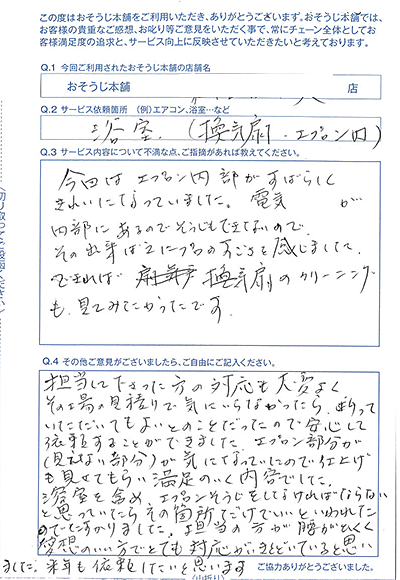 この度はおそうじ本舗をご利用いただき、ありがとうございます。おそうじ本舗では、
お客様の貴重なご感想、お叱り等ご意見をいただく事で、常にチェーン全体としてお
客様満足度の追求と、サービス向上に反映させていただきたいと考えております。
Q.1 今回ご利用されたおそうじ本舗の店舗名
おそうじ本舗 店
Q.2 サービス依頼箇所 (例)エアコン、浴室…など
浴室、(換気扇・エプロン内)
Q.3 サービス内容について不満な点、ご指摘があれば教えてください。
今回は エプロン内部がすばらしく
きれいになっていました。電気 が
内部にあるのでそうじもできないので、
その出来ばえにプロのすごさを感じました。
できれば 換気扇のクリーニング
も見てみたかったです。
Q.4 その他ご意見がございましたら、ご自由にご記入ください。
担当して下さった方の対応も大変よく
その場の見積りで気にいらなかったら、断って
いただいてもよいとのことだったので安心して
依頼することができました。エプロン部分が
(見えない部分)が気になっていたので仕上げ
も見せてもらい満足のいく内容でした。
浴室を含め、エプロンそうじをしなければならない
と思っていたらその箇所だけでいいといわれた
のでたすかりました。担当の方が腰がひくく
感想のいい方でとても対応がいきとどいていると思い
ました。来年も依頼したいと思います
ご協力ありがとうございました。
(山折り)